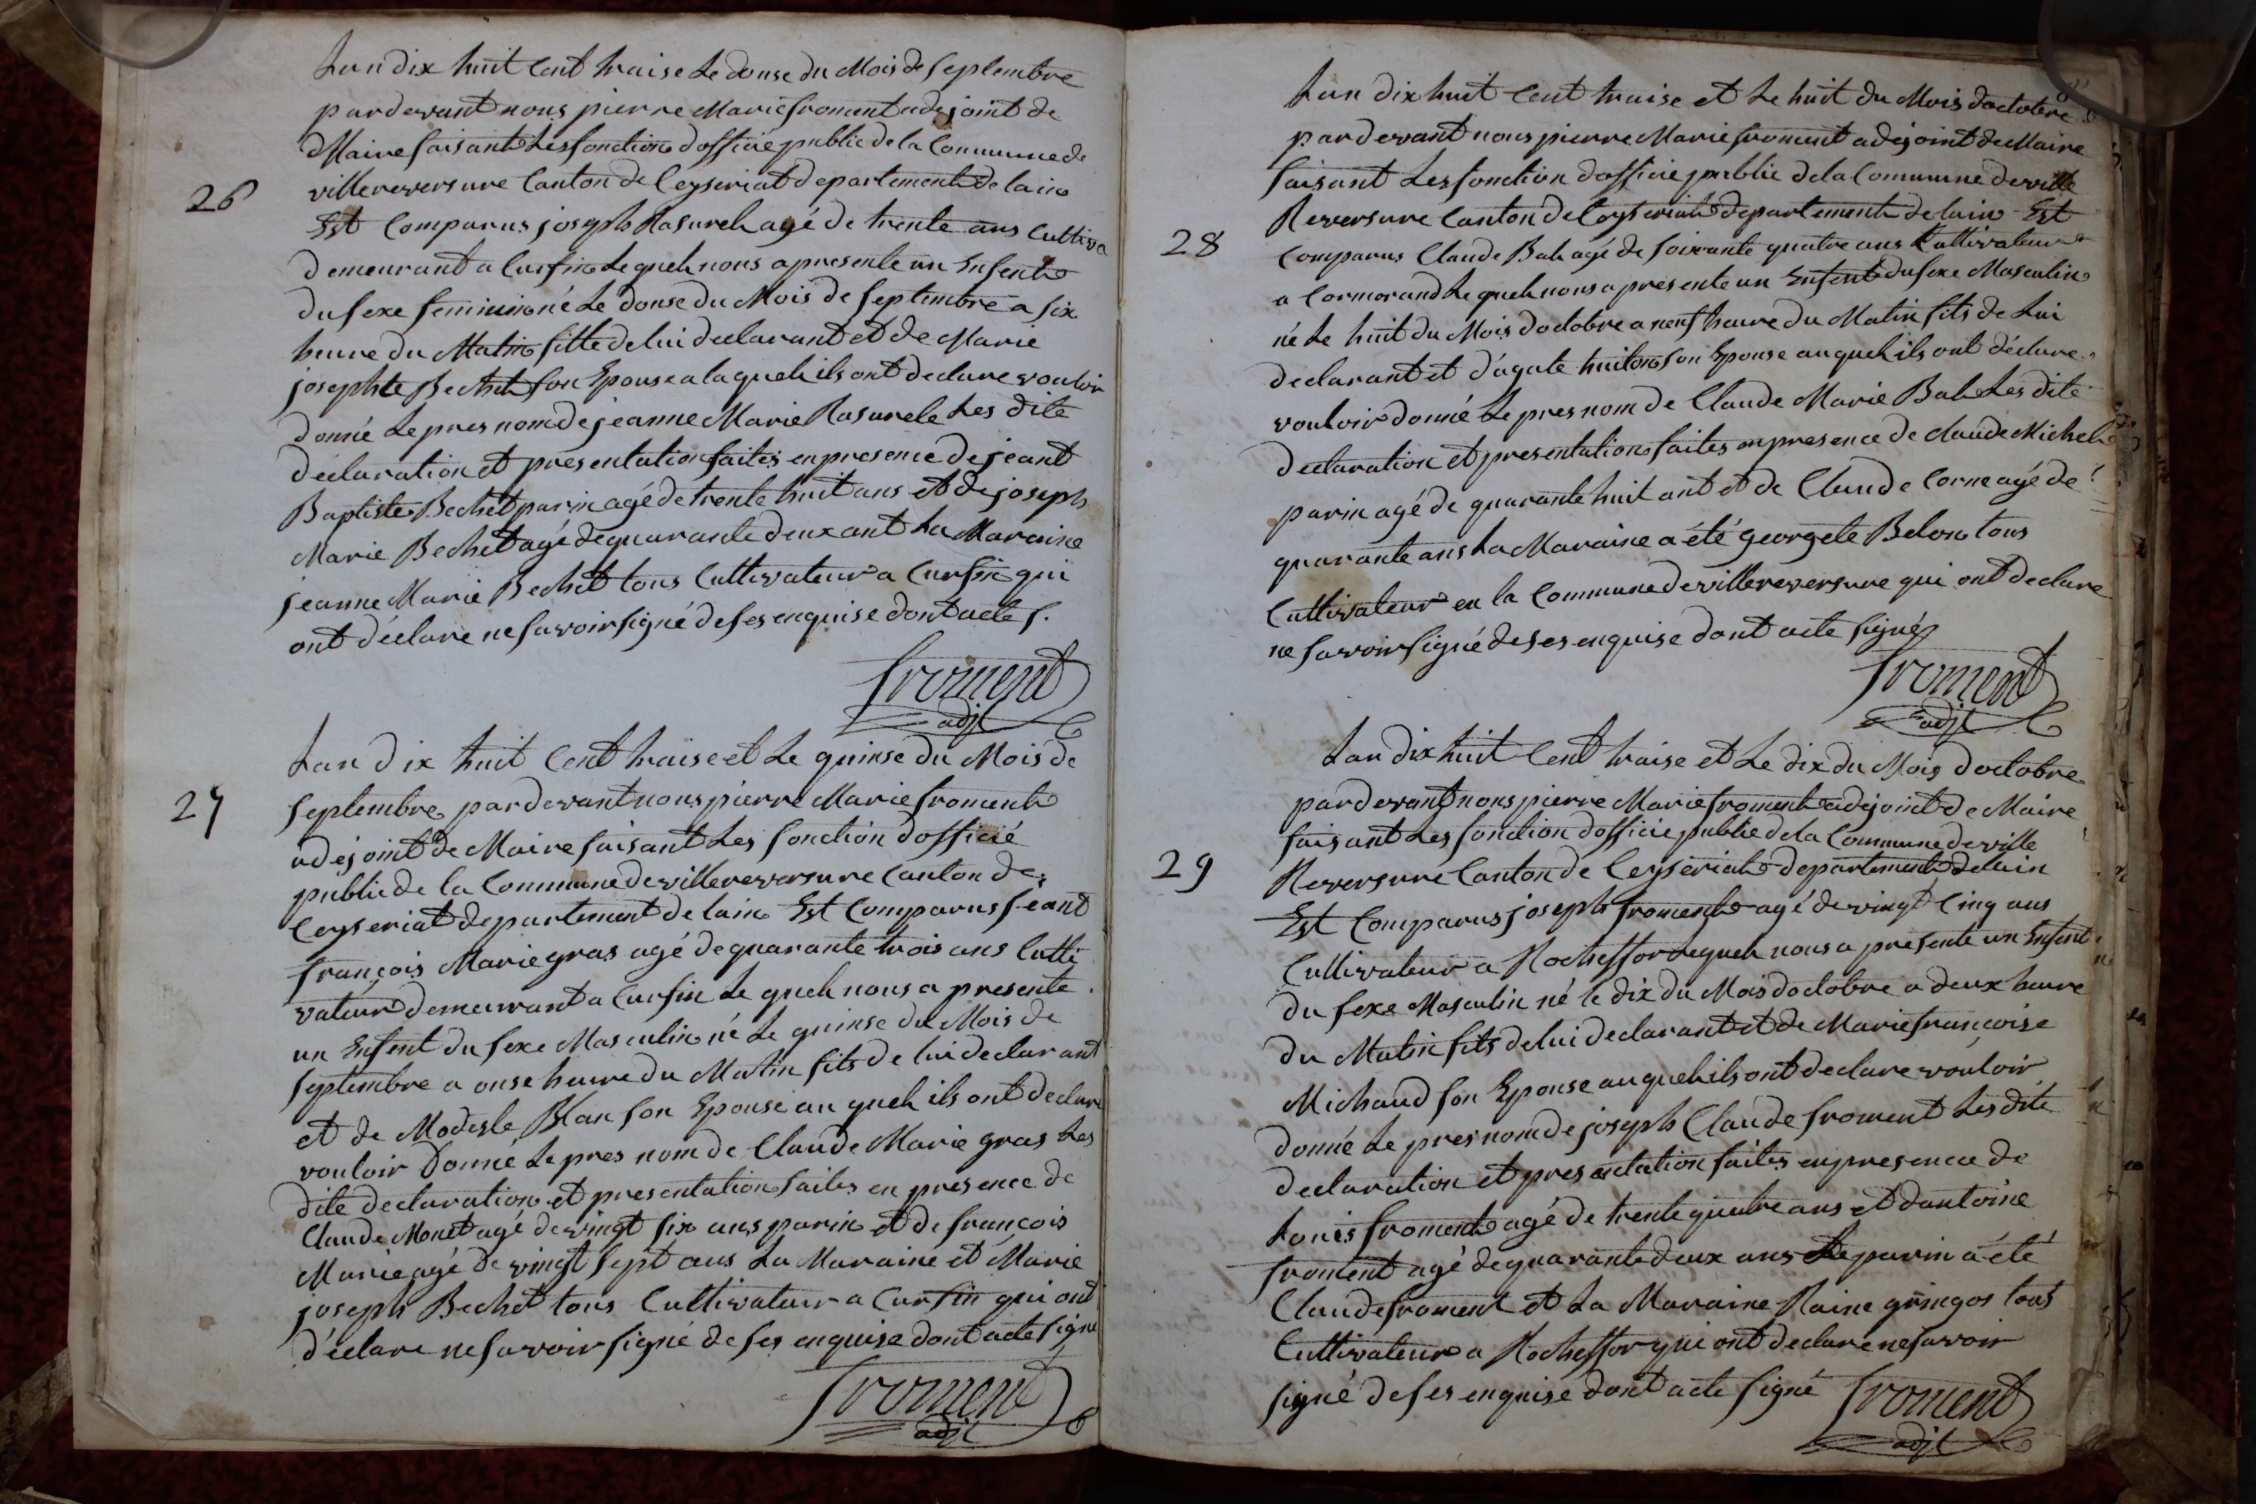 Lan dix huit Cent traise Le douse du Mois de Septembre
pardevant nous pierre Marie froment adejoint de
Maire faisant Les fonction dofficie public de la Commune de
26
villereversure Canton de Ceyseriat departement de lain
Est Comparus joseph Rasurel agé de trente ans Cultiva
demeurant a Cursin Le quel nous a presente un Enfent
du sexe feminin né Le douse du Mois de Septembre a six
heure du Matin fille de lui declarant et de Marie
josephte Bechet son Epouse a laquel ils ont declare vouloir
donné Le pres nom de jeanne Marie Rasurele Les dite
declaration et presentation faites en presence de jeant
Baptiste Bechet parin agé de trente huit ans et de joseph
Marie Bechet agé de quarante deux ant La Maraine
jeanne Marie Bechet tous Cultivateur a Cursin qui
ont déclare ne savoir signé de ses enquise dont acte s.
froment
adjt
Lan dix huit Cent traise et Le quinse du Mois de
27
Septembre pardevant nous pierre Marie froment
adejoint de Maire faisant Les fonction dofficié
public de la Commune de villereversure Canton de
Ceyseriat departement de lain Est Comparus jeant
françois Marie gras agé de quarante trois ans Culti
vateur demeurant a Cursin Le quel nous a presente
un Enfent du sexe Masculin né Le quinse du Mois de
septembre a onse heure du Matin fils de lui declarant
et de Modeste Blan son Epouse au quel ils ont declare
vouloir donné Le pres nom de Claude Marie gras Les
dite declaration et presentation faites en presence de
Claude Monet agé de vingt six ans parin et de françois
Marie agé de vingt sept ans La Maraine et Marie
joseph Bechet tous Cultivateur a Cursin qui ont
déclare ne savoir signé de ses enquise dont acte signe
froment
adjt
Lan dix huit Cent traise et Le huit du Mois doctobre
par devant nous pierre Marie froment adejoint de Maire
faisant Les fonction dofficie public de la Commune de ville
Reversure Canton de Ceyseriat departement de lain Est
28
Comparus Claude Bal agé de soixante quatre ans Cultivateur
a Cormorand Le quel nous a presente un Enfent du sexe Masculin
né Le huit du Mois doctobre a neuf heure du Matin fils de Lui
declarant et dágate huiton son Epouse au quel ils ont déclare
vouloir donné Le pres nom de Claude Marie Bal Les dite
declaration et presentation faites en presence de claude Michel
parin agé de quarante huit ant et de Claude Corne agé de
quarante ans La Maraine a été georgete Belon tous
Cultivateur en la Commune de villereversure qui ont declare
ne savoir signé de ses enquise dont acte signé
froment
adjt
Lan dix huit Cent traise et Le dix du Mois doctobre
par devant nous pierre Marie froment adejoint de Maire
faisant Les fonction dofficie public de la Commune de ville
29
Reversure Canton de Ceyseriat departement de lain
Est Comparus joseph froment agé de vingt Cinq ans
Cultivateur a Rocheffor Lequel nous a presente un Enfent
du sexe Masculin né le dix du Mois doctobre a deux heure
du Matin fils de lui declarant et de Marie françoise
Michaud son Epouse au quel ils ont declare vouloir
donné Le pres nom de joseph Claude froment Les dite
declaration et presentation faites en presence de
Louis froment agé de trente quatre ans et dantoine
froment agé de quarante deux ans Le parin a été
Claude froment et La Maraine Raine gringos tous
Cultivateur a Rocheffor qui ont declare ne savoir
signé de ses enquise dont acte signé
froment
adjt